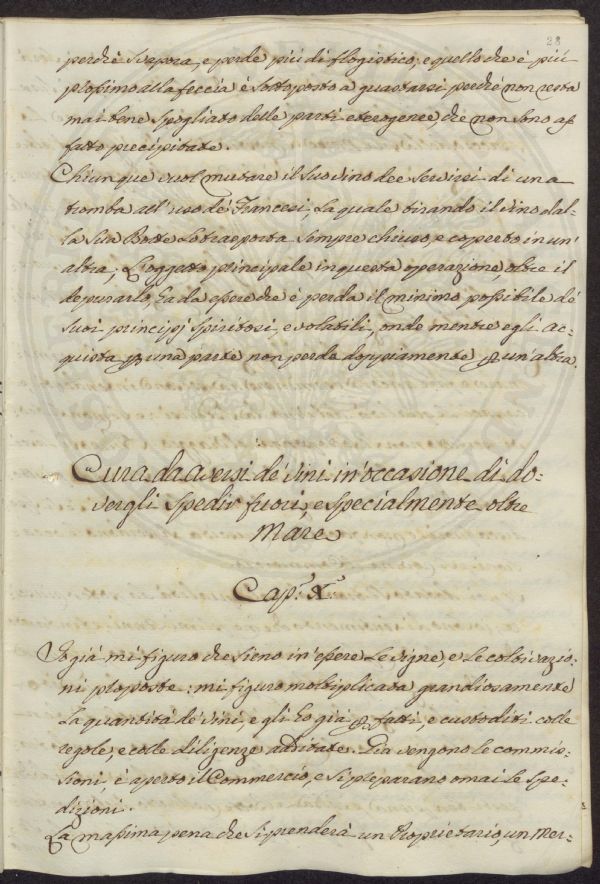 28
perchè svapora, e perde più di flogistico; e quello che è più
prossimo alla feccia è sottoposto a guastarsi perchè non resta
mai bene spogliato delle parti eterogenee, che non sono af
fatto precipitate.
Chiunque vuol mutare il suo vino dee servirsi di una
tromba all'uso de' Francesi, la quale tirando il vino dal-
la sua Botte lo trasporta sempre chiuso, e coperto in un'
altra; L'oggetto principale in questa operazione, oltre il
depurarlo, ha da essere che è perda il minimo possibile de'
suoi principj spiritosi, e volatili, onde mentre egli ac=
quista p una parte non perda doppiamente p un'altra.
Cura da aversi de' vini in occasione di do=
vergli spedir fuori, e specialmente oltre
Mare
Cap.º X.º
Io già mi figuro che sieno in essere le vigne, e le coltivazio=
ni proposte: mi figuro moltiplicata grandiosamente
la quantità de' vini, e gli ho già p fatti, e custoditi colle
regole, e colle diligenze additate. Già vengono le commis=
sioni, è aperto il Commercio, e si preparano omai le spe=
dizioni.
La massima pena che si prenderà un Proprietario, un Mer=